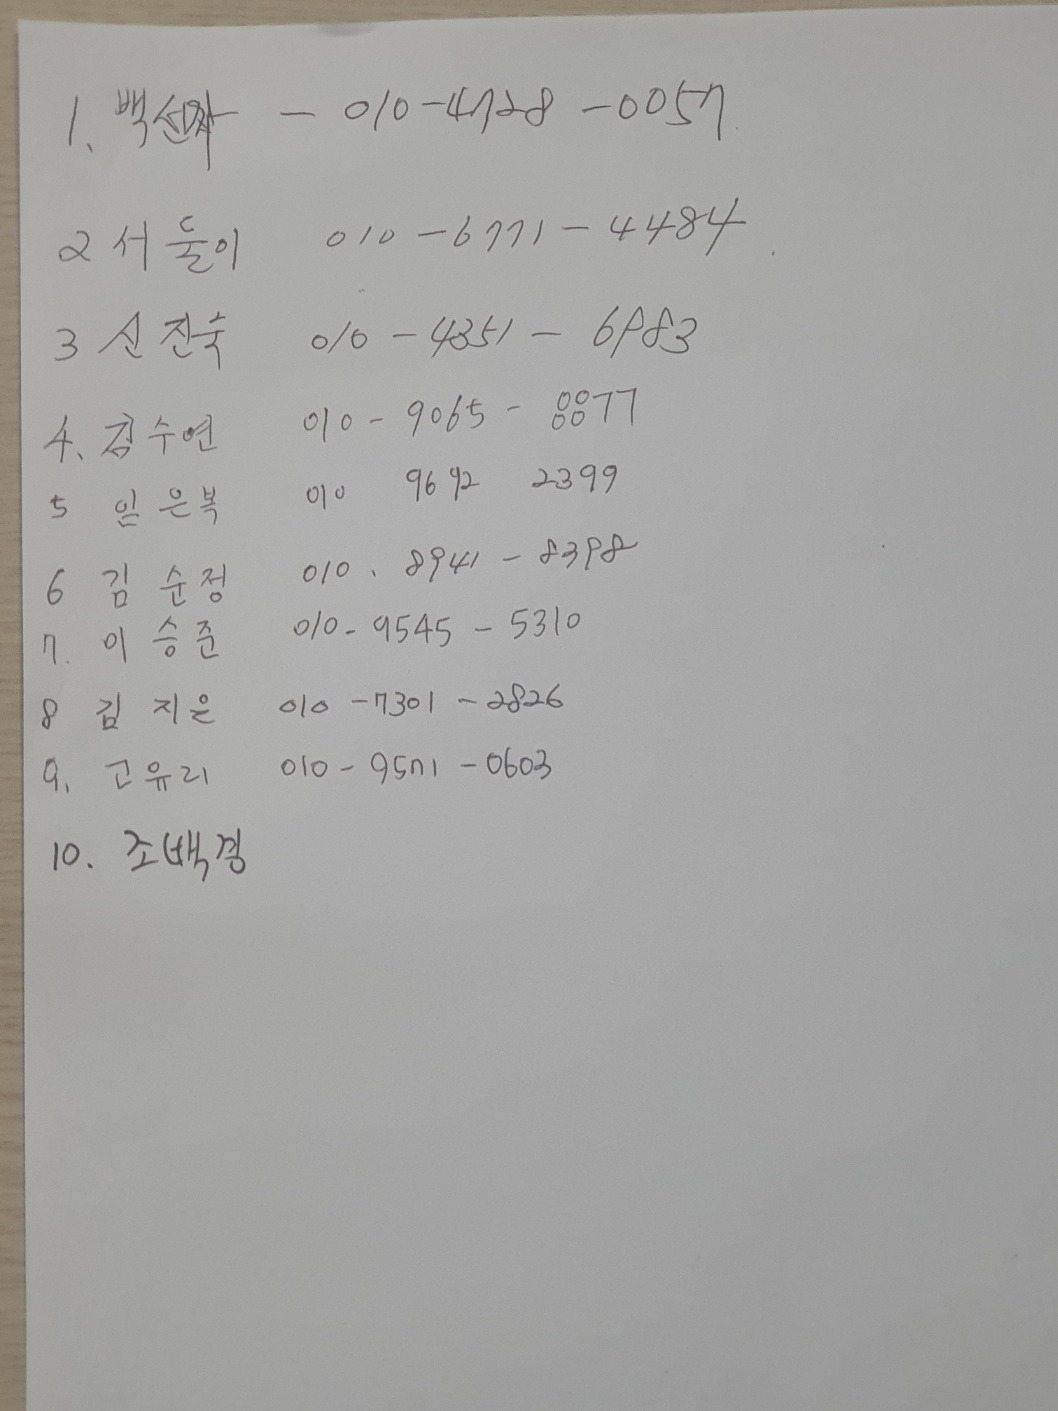 1. 백선자 - 010-4728-0057
2 서둘이 010-6771-4484
3 신진숙 010-4351-6983
4. 김수연 010-9065-8877
5 은복 010 9692 2399
6 김순정 010. 8941-8398
7. 이승준 010-9545-5310
8 김지은 010-7301-2826
9. 고유리 010-9571-0603
10. 조백경